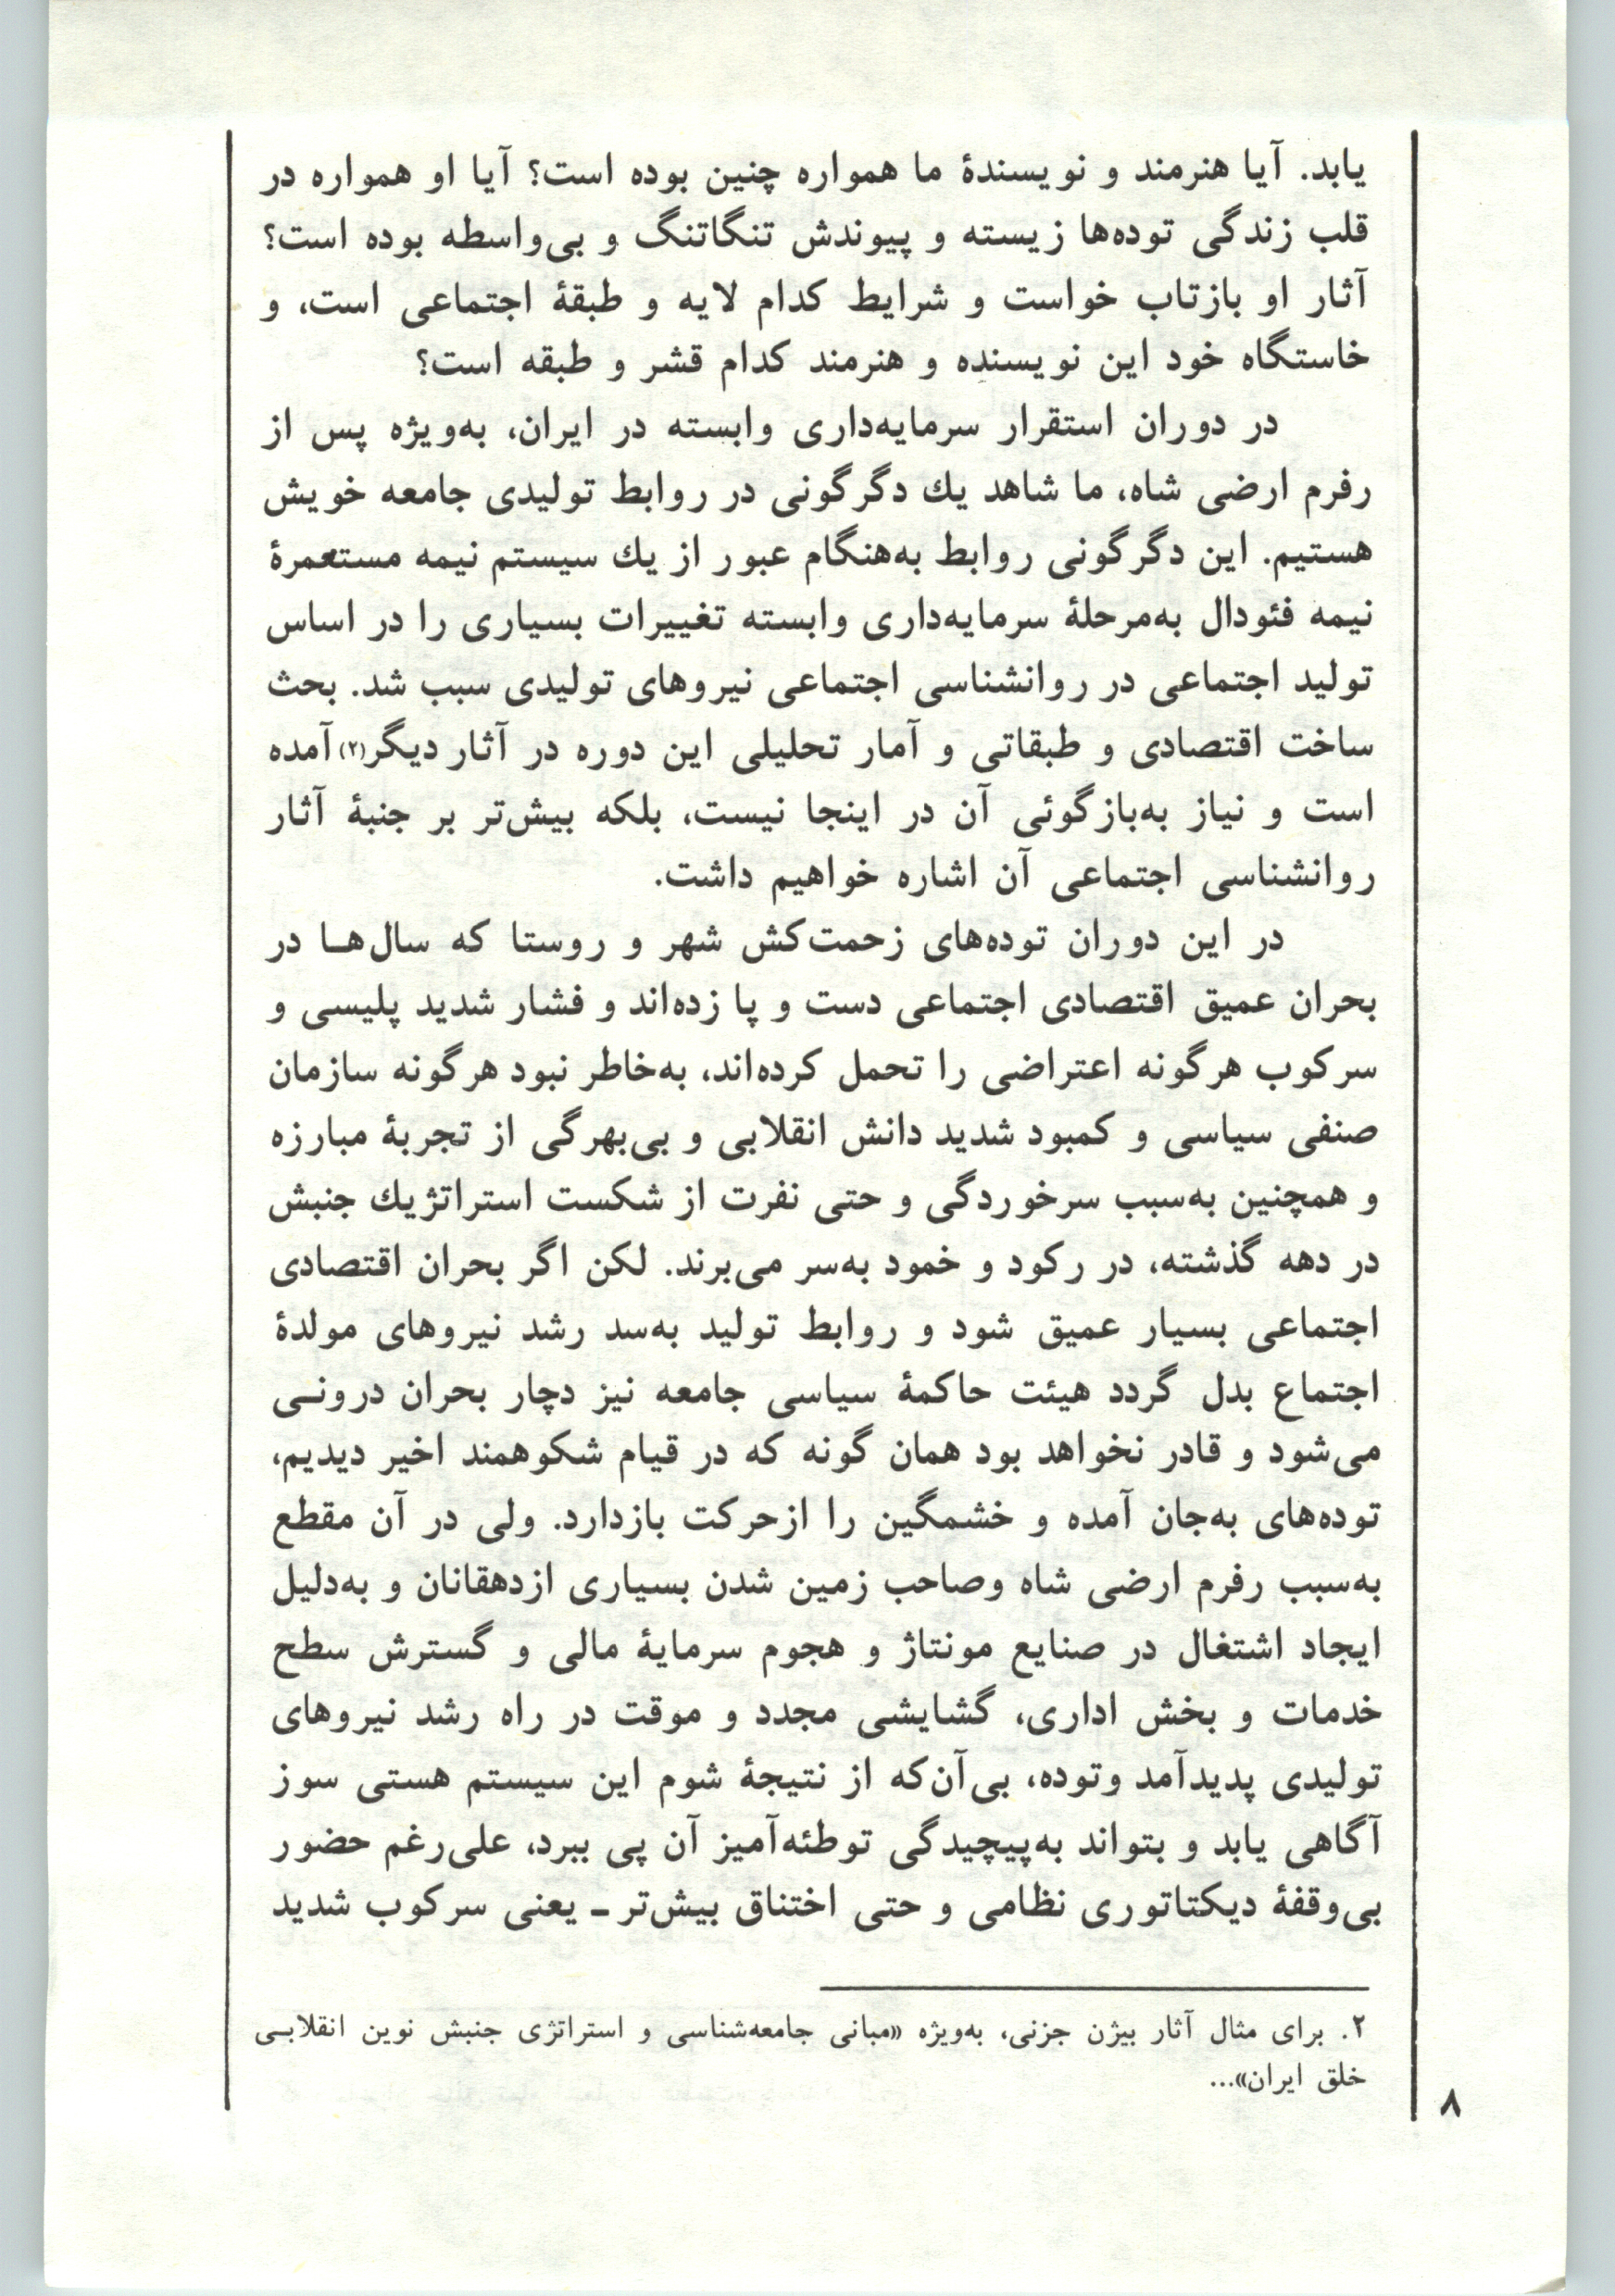 یابد. آیا هنرمند و نویسندهٔ ما همواره چنین بوده است؟ آیا او همواره در
قلب زندگی توده‌ها زیسته و پیوندش تنگاتنگ و بی‌واسطه بوده است؟
آثار او بازتاب خواست و شرایط کدام لایه و طبقهٔ اجتماعی است، و
خاستگاه خود این نویسنده و هنرمند کدام قشر و طبقه است؟
در دوران استقرار سرمایه‌داری وابسته در ایران، به‌ویژه پس از
رفرم ارضی شاه، ما شاهد یك دگرگونی در روابط تولیدی جامعه خویش
هستیم. این دگرگونی روابط به‌هنگام عبور از یك سیستم نیمه مستعمرهٔ
نیمه فئودال به‌مرحلهٔ سرمایه‌داری وابسته تغییرات بسیاری را در اساس
تولید اجتماعی در روانشناسی اجتماعی نیروهای تولیدی سبب شد. بحث
ساخت اقتصادی و طبقاتی و آمار تحلیلی این دوره در آثار دیگر(۲) آمده
است و نیاز به‌بازگوئی آن در اینجا نیست، بلکه بیش‌تر بر جنبهٔ آثار
روانشناسی اجتماعی آن اشاره خواهیم داشت.
در این دوران توده‌های زحمت‌کش شهر و روستا که سال‌هـا در
بحران عمیق اقتصادی اجتماعی دست و پا زده‌اند و فشار شدید پلیسی و
سرکوب هرگونه اعتراضی را تحمل کرده‌اند، به‌خاطر نبود هرگونه سازمان
صنفی سیاسی و کمبود شدید دانش انقلابی و بی‌بهرگی از تجربهٔ مبارزه
و همچنین به‌سبب سرخوردگی و حتی نفرت از شکست استراتژیك جنبش
در دهه گذشته، در رکود و خمود به‌سر می‌برند. لکن اگر بحران اقتصادی
اجتماعی بسیار عمیق شود و روابط تولید به‌سد رشد نیروهای مولدهٔ
اجتماع بدل گردد هیئت حاکمهٔ سیاسی جامعه نیز دچار بحران درونـی
می‌شود و قادر نخواهد بود همان گونه که در قیام شکوهمند اخیر دیدیم،
توده‌های به‌جان آمده و خشمگین را ازحرکت بازدارد. ولی در آن مقطع
به‌سبب رفرم ارضی شاه وصاحب زمین شدن بسیاری ازدهقانان و به‌دلیل
ایجاد اشتغال در صنایع مونتاژ و هجوم سرمایهٔ مالی و گسترش سطح
خدمات و بخش اداری، گشایشی مجدد و موقت در راه رشد نیروهای
تولیدی پدیدآمد وتوده، بی‌آن‌که از نتیجهٔ شوم این سیستم هستی سوز
آگاهی یابد و بتواند به‌پیچیدگی توطئه‌آمیز آن پی ببرد، علی‌رغم حضور
بی‌وقفهٔ دیکتاتوری نظامی و حتی اختناق بیش‌تر ـ یعنی سرکوب شدید
۲. برای مثال آثار بیژن جزنی، به‌ویژه «مبانی جامعه‌شناسی و استراتژی جنبش نوین انقلابـی
خلق ایران»...
۸